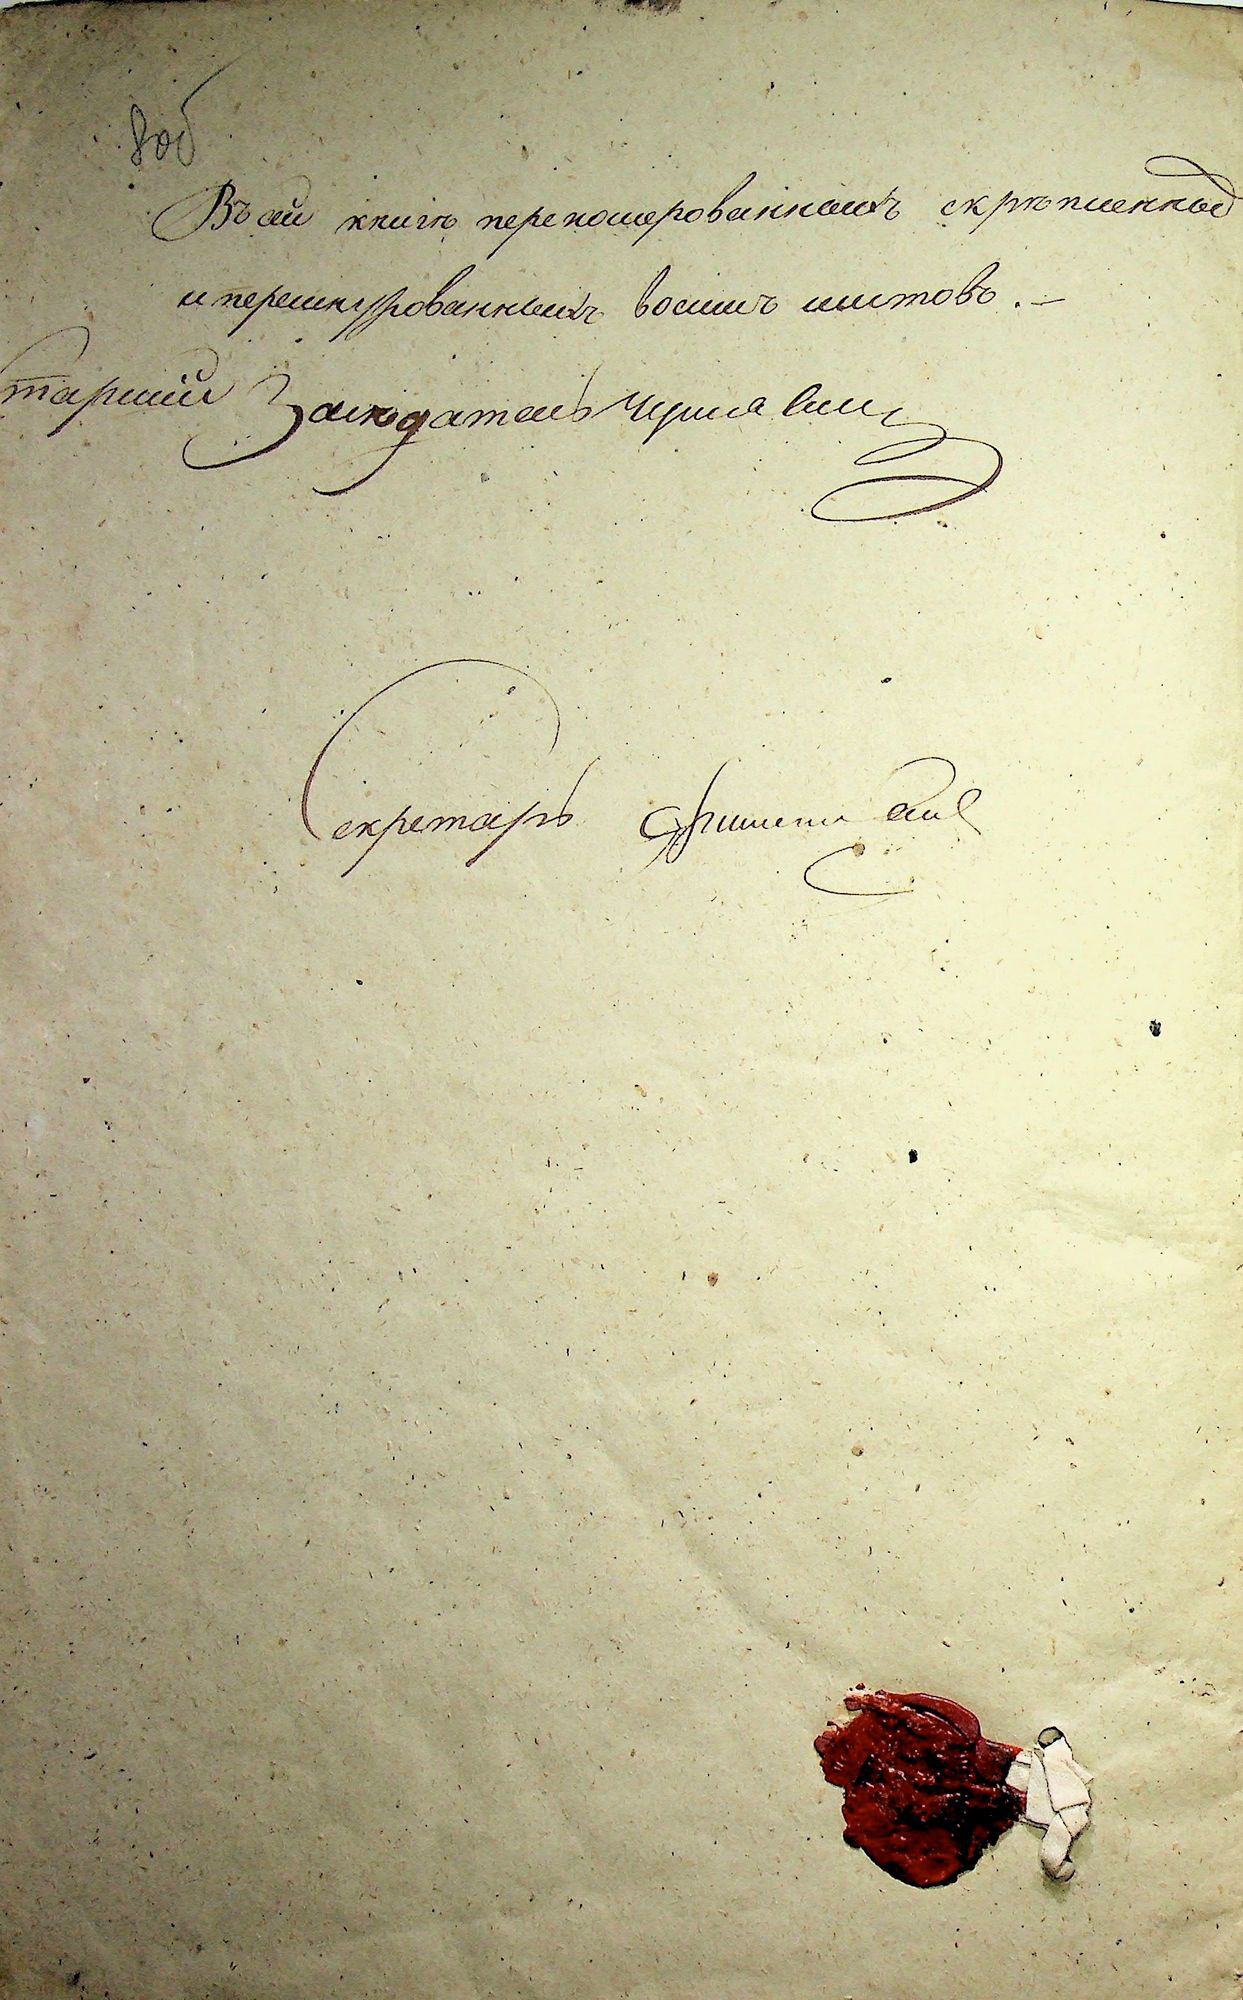 8об
Въ сей книгѣ переномерованныхъ скрѣпленныхъ
и перешнурованныхъ восемь листовъ. —
Старшій Засѣдатель
Секретарь